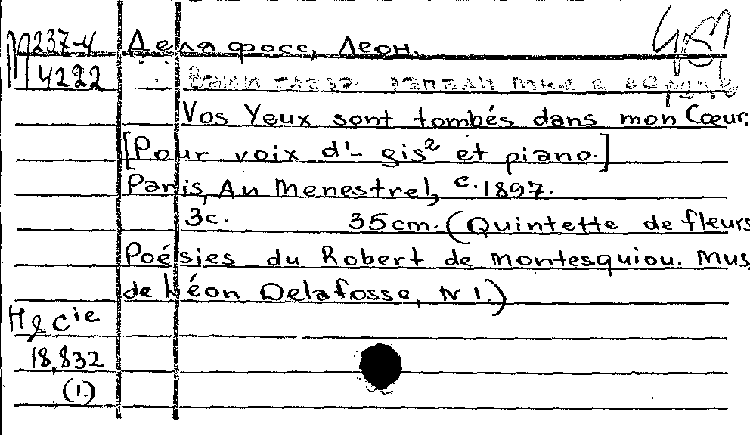 М237-4 Делафосс, Леон.
4222
Vos Yeux sont tombés dans mon Cœur.
[Pour voix d'- gis² et piano.]
Paris, Au Menestrel, c. 1897.
3c. 35cm. (Quintette de fleurs
Poésies du Robert de Montesquiou. Mus
de Léon Delafosse, N 1.)
H & Cie
18,832
(1.)